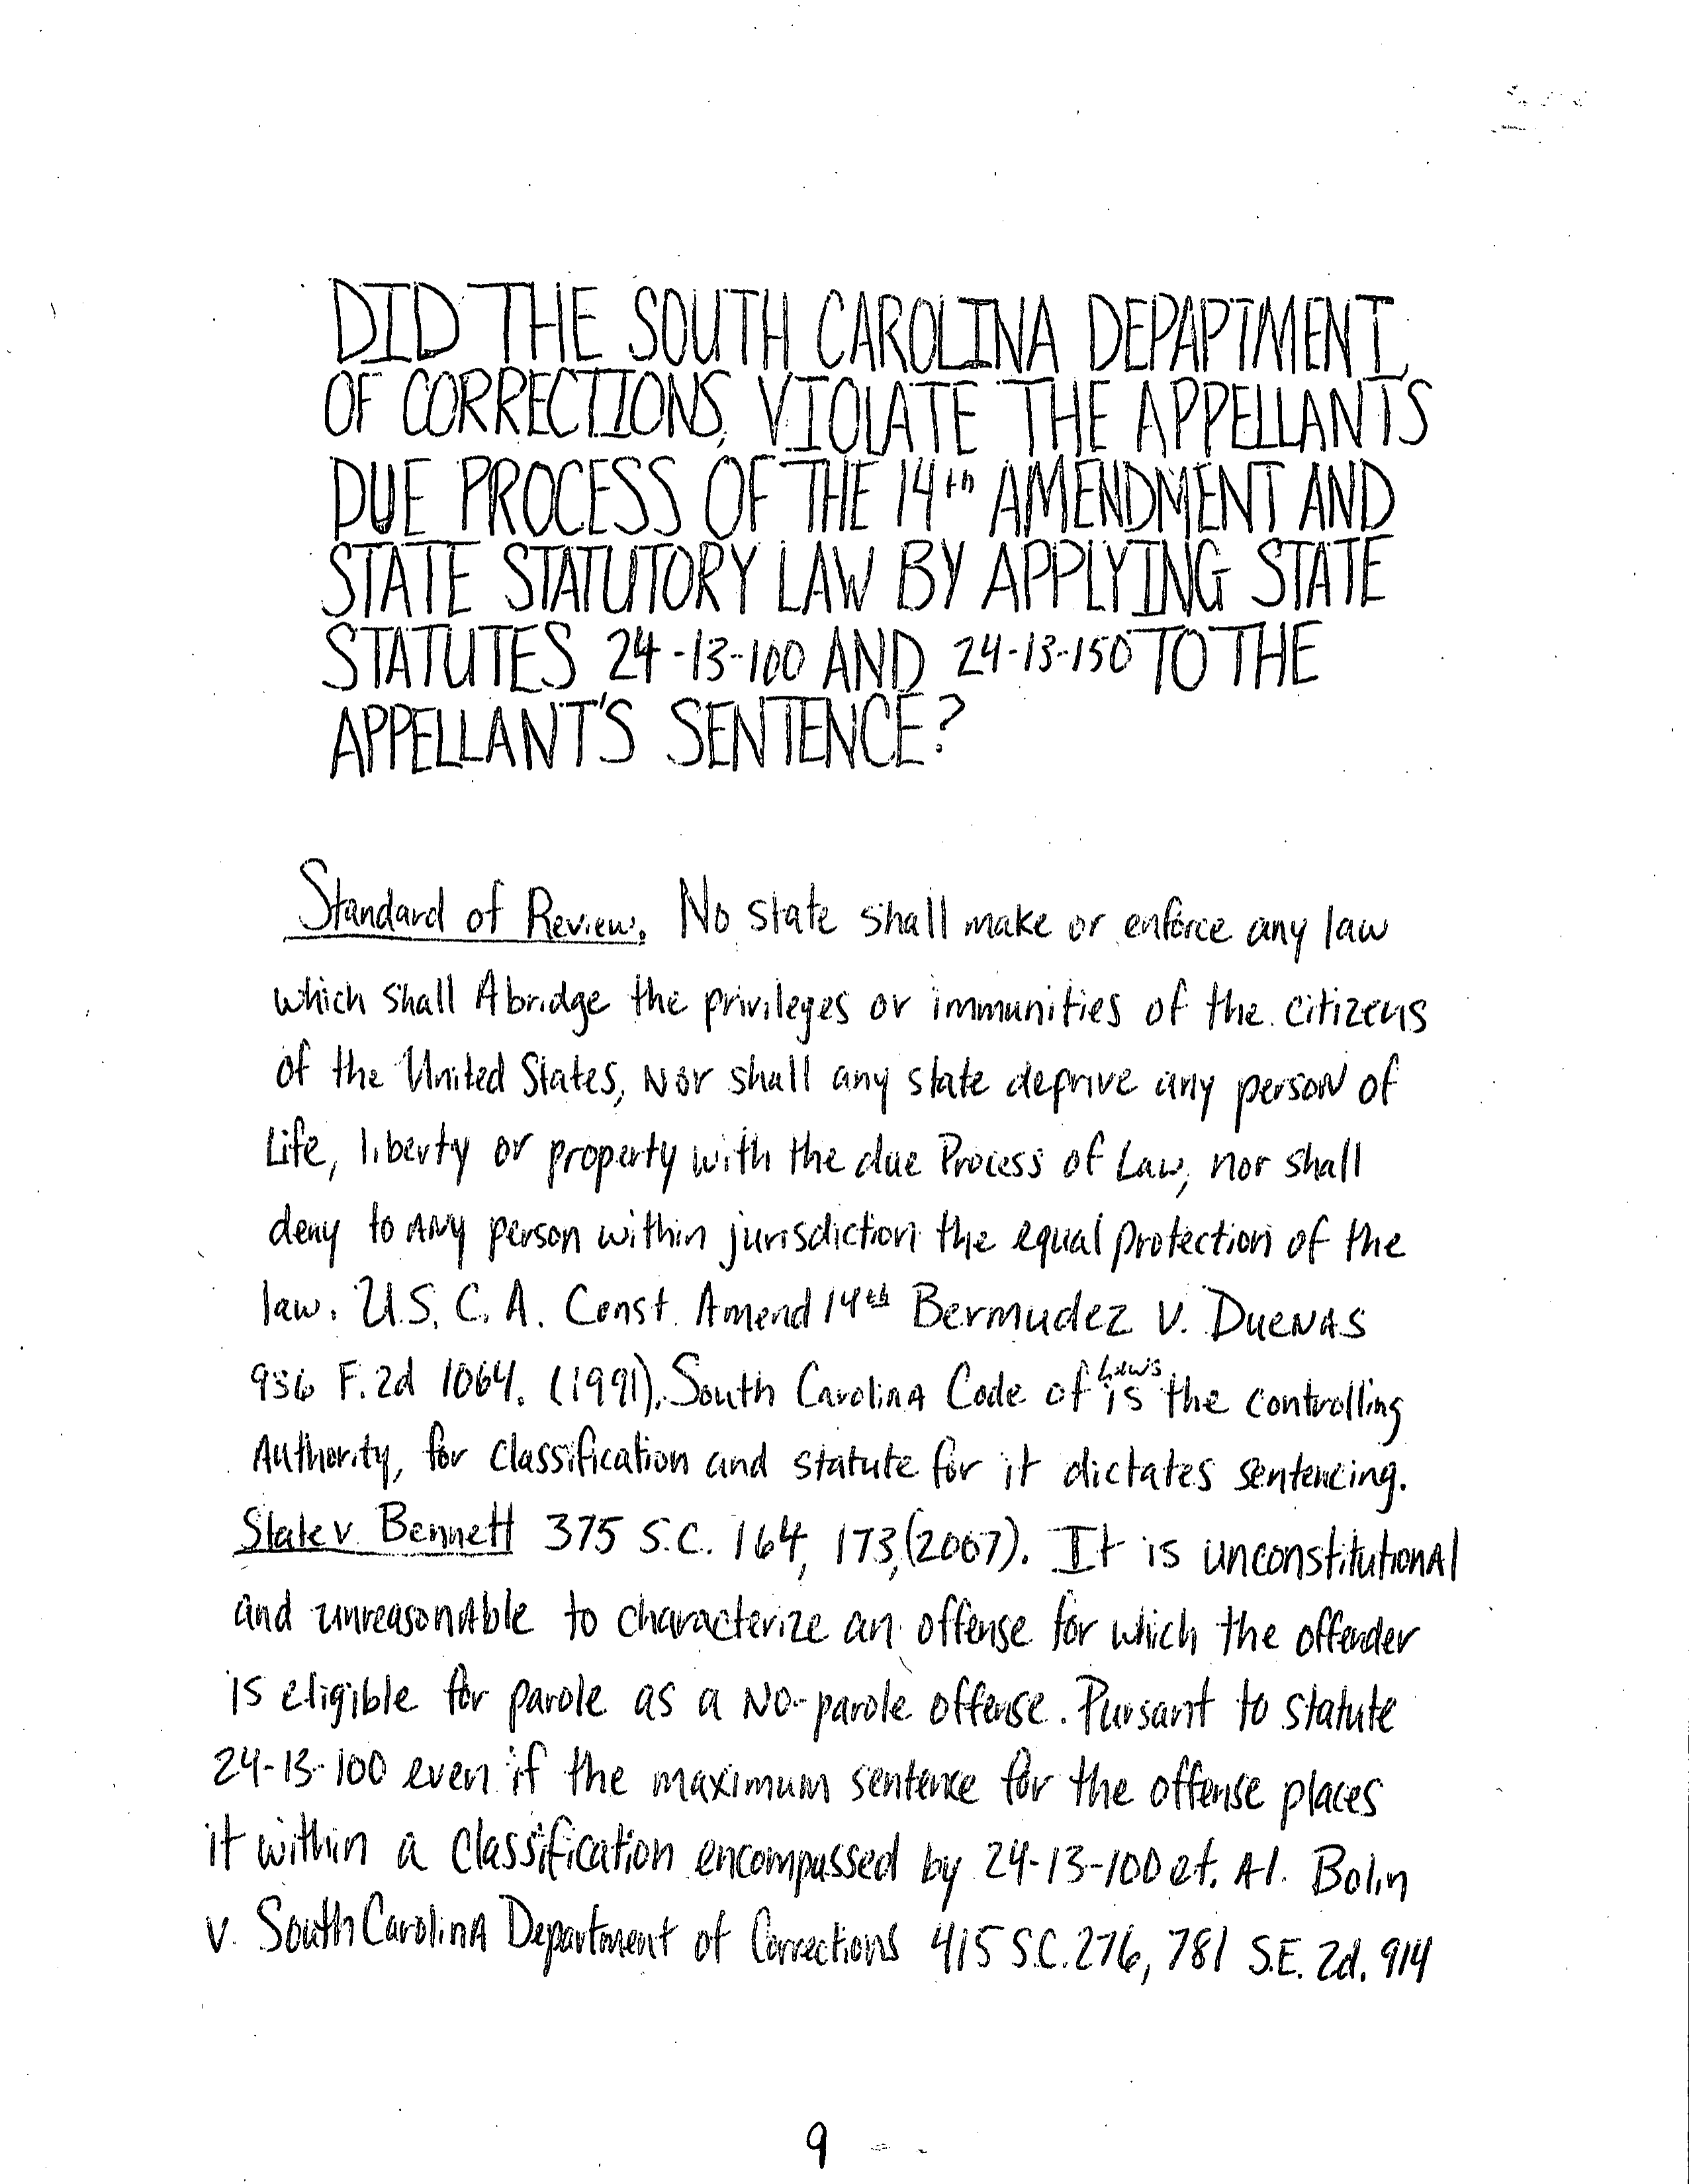 DID THE SOUTH CAROLINA DEPAPTMENT
OF CORRECTIONS, VIOLATE THE APPELLANTS
DUE PROCESS OF THE 14th AMENDMENT AND
STATE STATUTORY LAW BY APPLYING STATE
STATUTES 24-13-100 AND 24-13-150 TO THE
APPELLANT'S SENTENCE?
Standard of Review. No state shall make or enforce any law
which shall Abridge the privileges or immunities of the citizens
of the United States, Nor shall any state deprive any person of
Life, liberty or property with the due Process of Law, nor shall
deny to ANy person within jurisdiction the equal protection of the
law. U.S.C.A. Const. Amend 14th Bermudez V. DueNAS
936 F.2d 1064. (1991). South CarolinA Code of Laws is the controlling
Authority, for classification and statute for it dictates sentencing.
State v. Bennett 375 S.C. 164, 173, (2007). It is unconstitutionAl
and unreasonAble to characterize an offense for which the offender
is eligible for parole as a NO-parole offense. Pursant to statute
24-13-100 even if the maximum sentence for the offense places
it within a classification encompassed by 24-13-100 et. Al. Bolin
v. South CarolinA Department of Corrections 415 S.C. 276, 781 S.E. 2d. 914
9